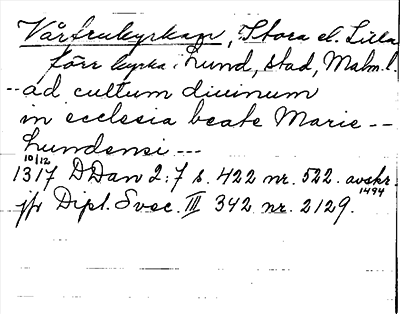 Vårfrukyrkan, Stora el. Lilla
förr kyrka i Lund, stad, Malm.l.
-- ad cultum diuinum
in ecclesia beate Marie --
Lundensi ---
10/12
1317 DDan 2:7 s. 422 nr. 522. avskr.
1494
jfr Dipl. Svec. III 342 nr. 2129.